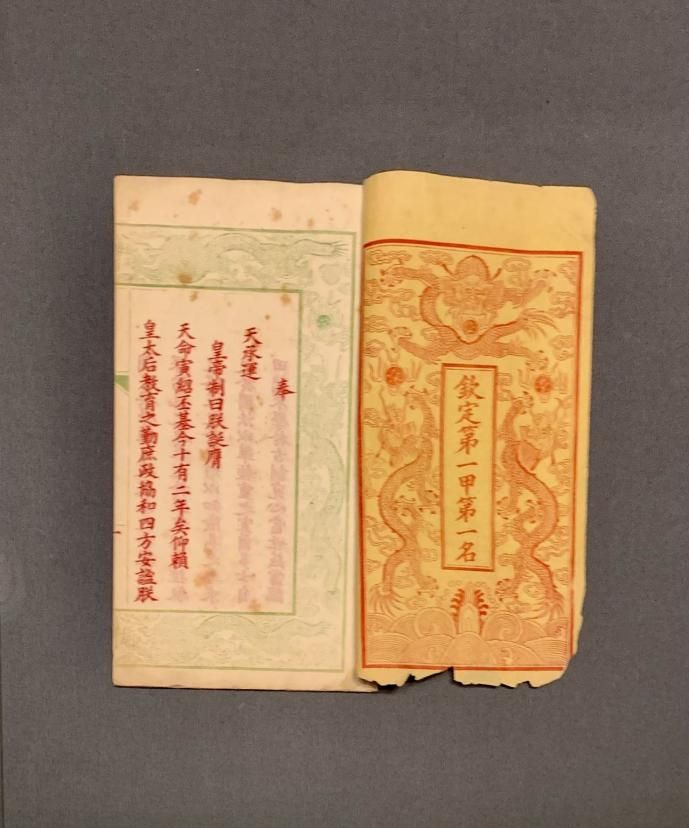 欽定第一甲第一名
奉
天承運
皇帝制曰朕誕膺
天命寅紹丕基今十有二年矣仰賴
皇太后教育之勤庶政協和四方安謐朕